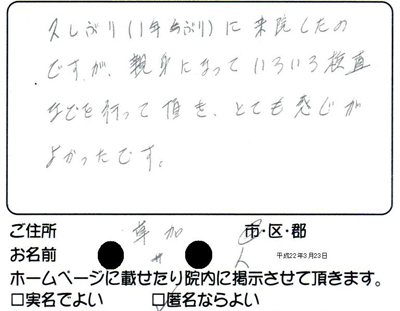 久しぶり(1年ぶり)に来院したの
ですが、親身になっていろいろ検査
などを行って頂き、とても感じが
よかったです。
ご住所 草加 市・区・郡
お名前 サ 人 平成22年3月23日
ホームページに載せたり院内に掲示させて頂きます。
□実名でよい □匿名ならよい